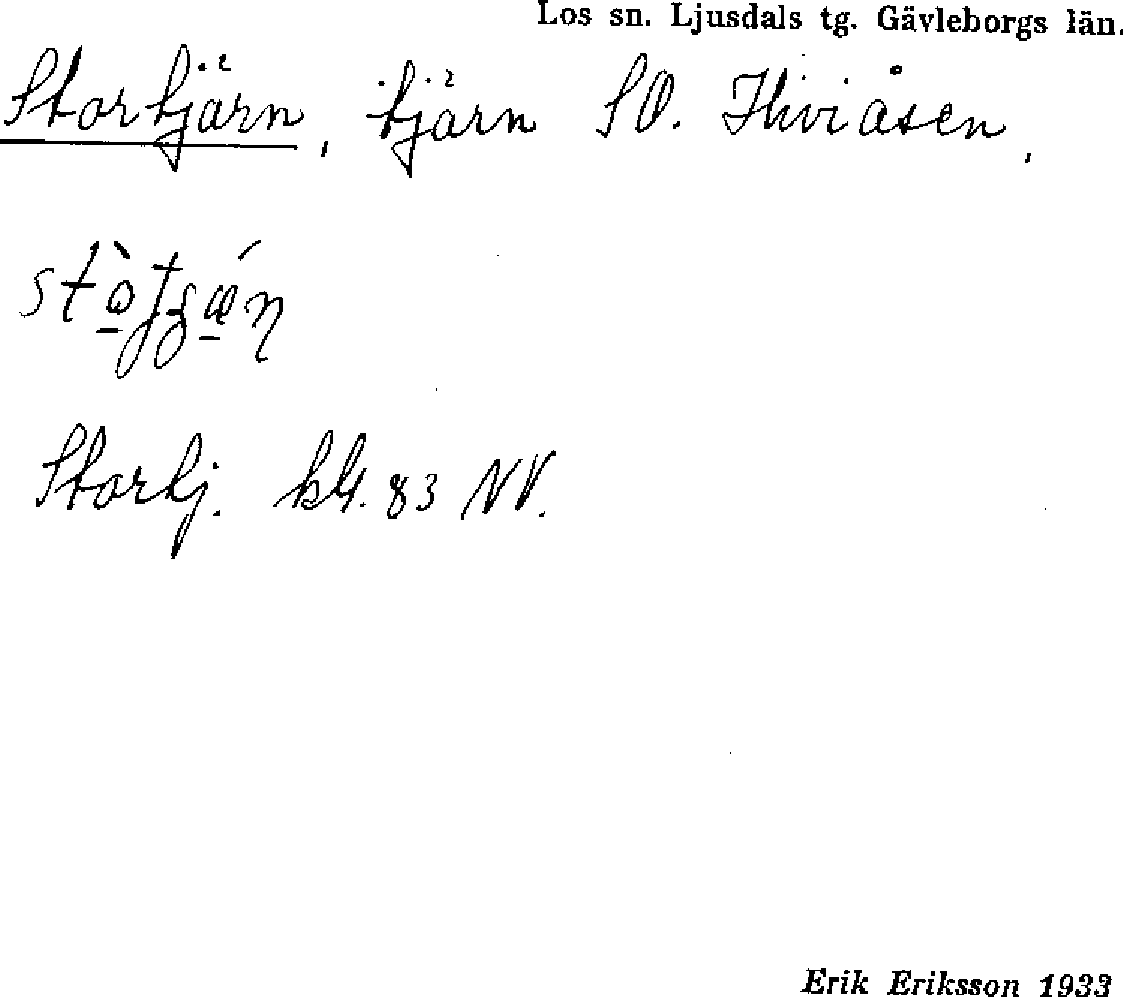 Los sn. Ljusdals tg. Gävleborgs län.
Stortjärn, tjärn SO. Hiviåsen,
Stortj. kbl. 83 NV.
Erik Eriksson 1933